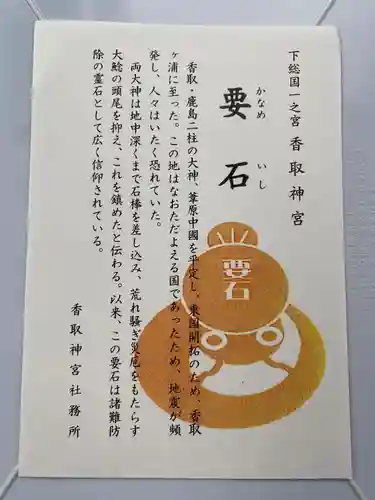 下総国一之宮 香取神宮
かなめ いし
要石
香取・鹿島二柱の大神、葦原中國を平定し。東国開拓のため、香取
ヶ浦に至った。この地はなおただよえる国であったため、地震が頻
発し、人々はいたく恐れていた。
両大神は地中深くまで石棒を差し込み、荒れ騒ぎ災厄をもたらす
大鯰の頭尾を抑え、これを鎮めたと伝わる。以来、この要石は諸難防
除の霊石として広く信仰されている。
香取神宮社務所
要石